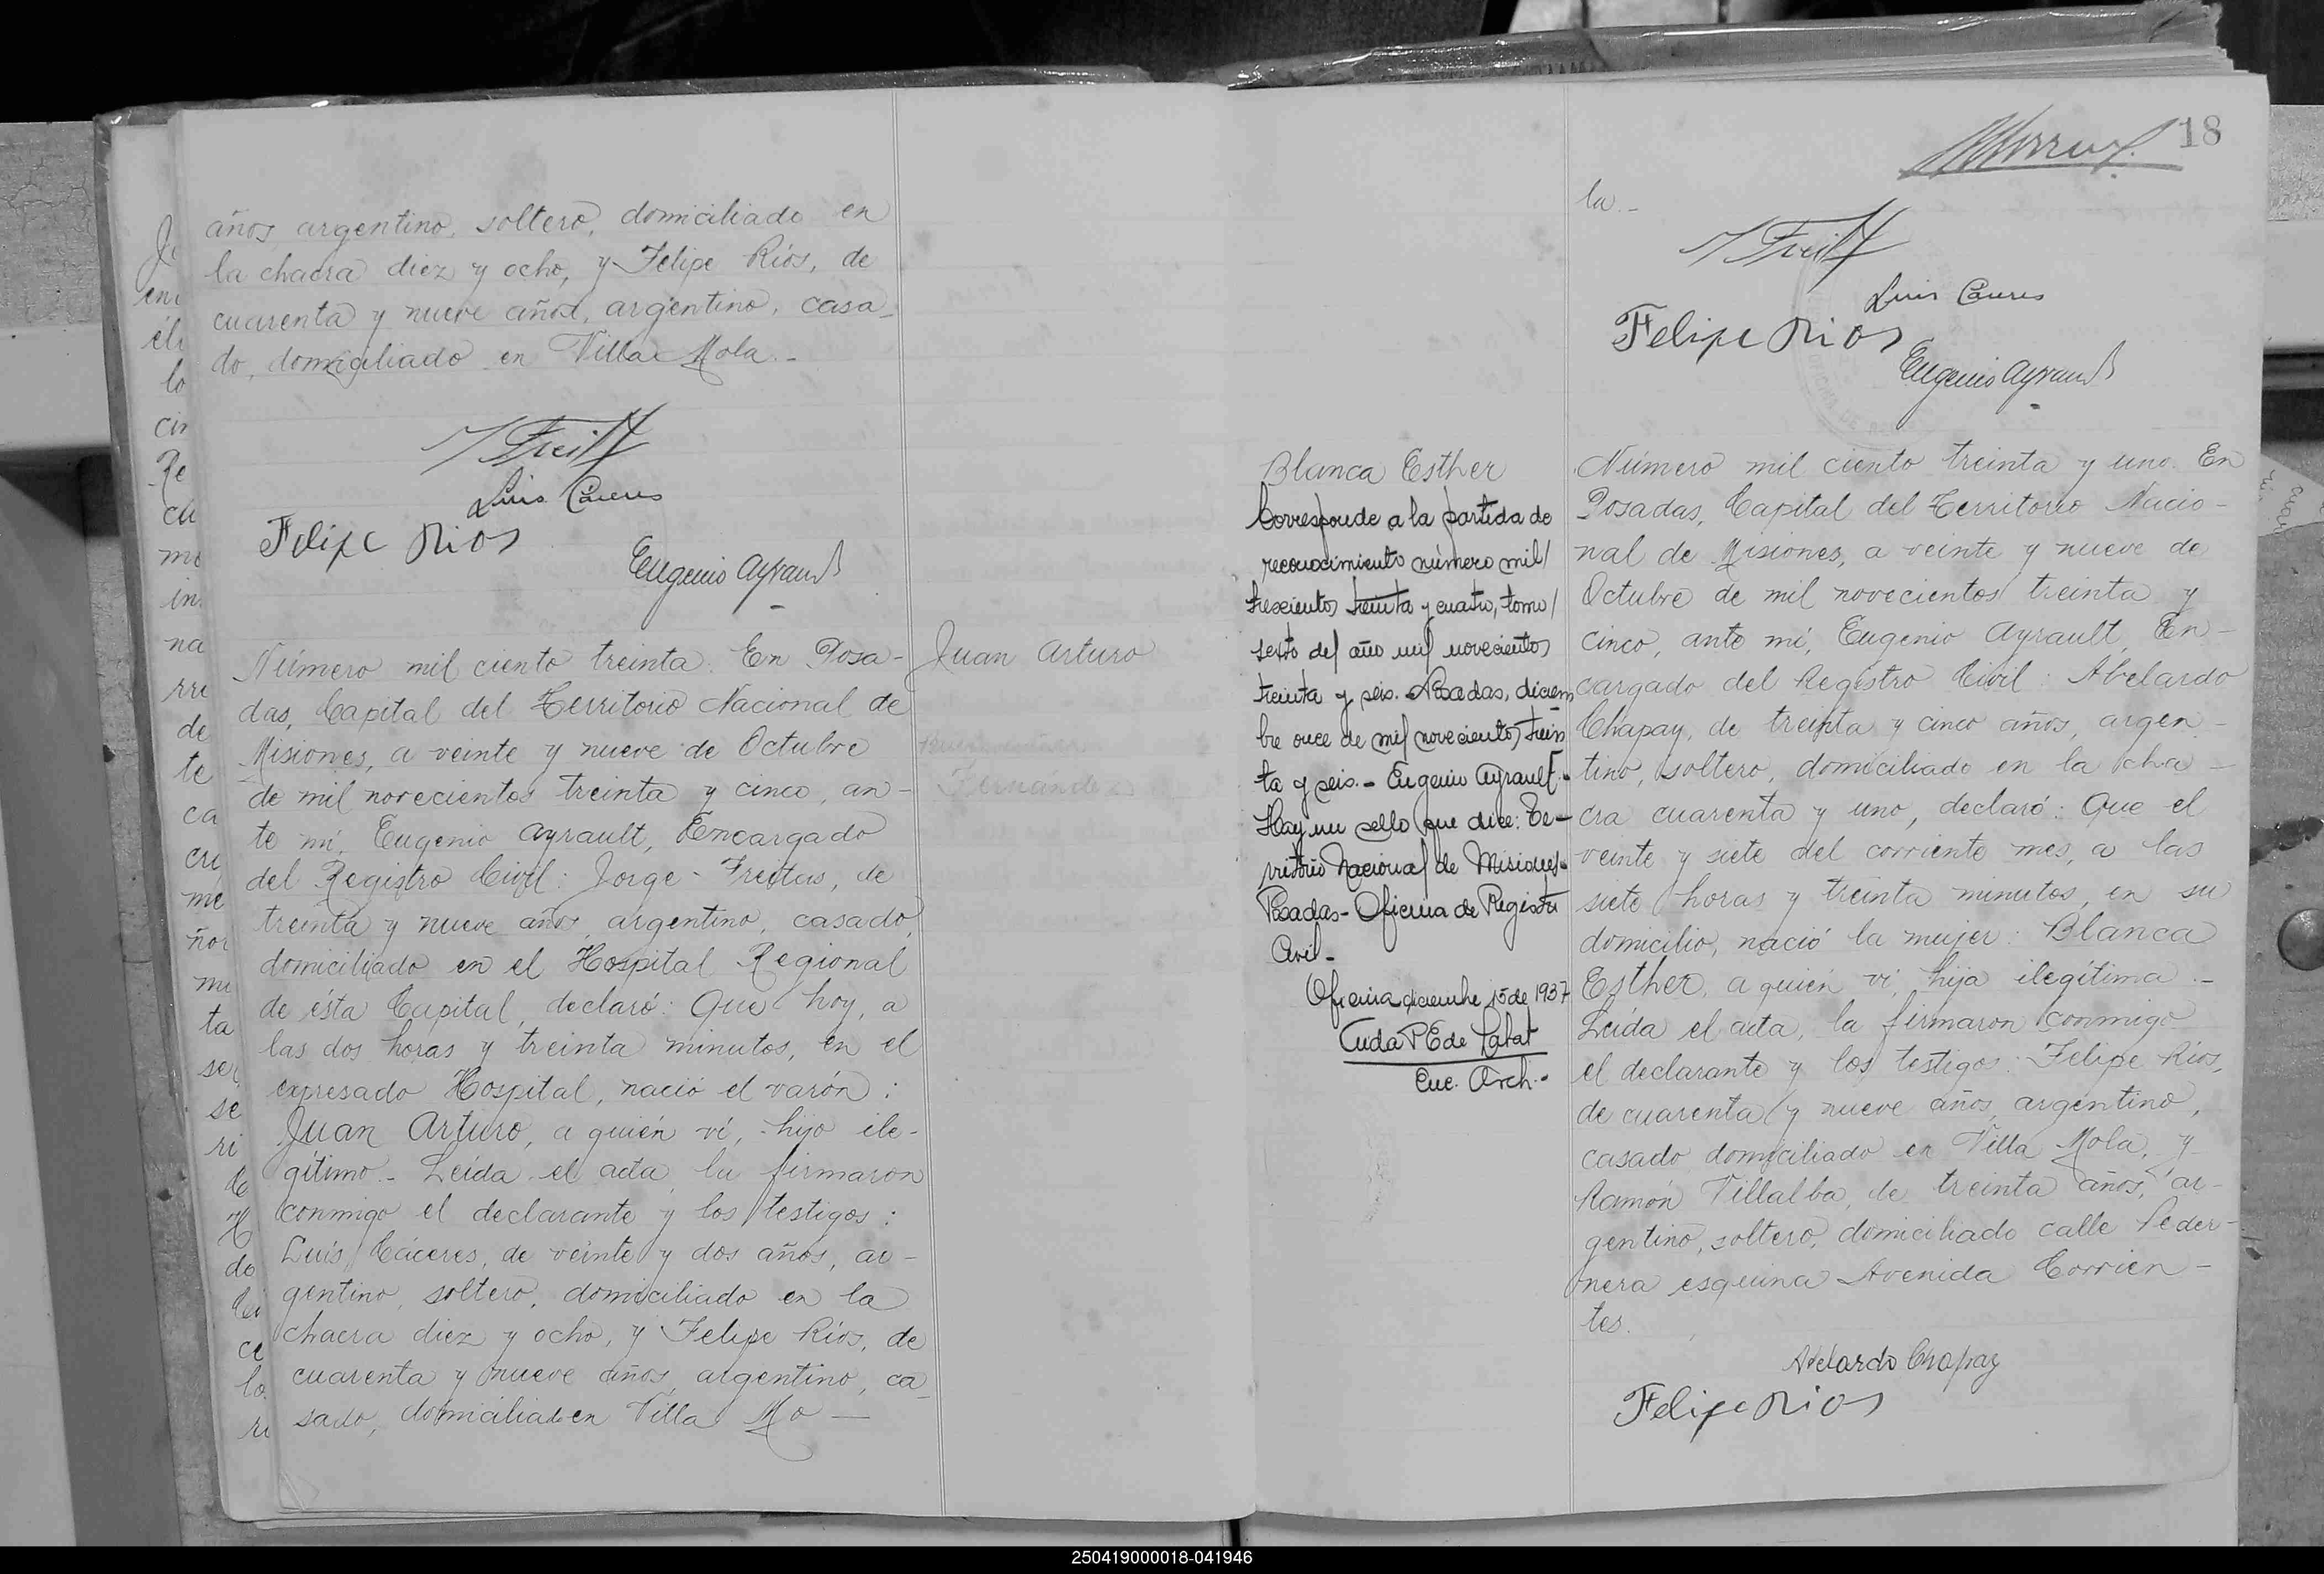 años argentino, soltero, domiciliado en
la chacra diez y ocho, y Felipe Ríos, de
cuarenta y nueve años, argentino, casa-
do, domiciliado en Villa Mola.-
Luis Cáceres
Felipe Rios
Eugenio Ayrault
Número mil ciento treinta. En Posa-
das, Capital del Territorio Nacional de
Misiones, a veinte y nueve de Octubre
de mil novecientos treinta y cinco, an-
te mí, Eugenio Ayrault, Encargado
del Registro Civil: Jorge Freitas, de
treinta y nueve años, argentino, casado,
domiciliado en el Hospital Regional
de ésta Capital, declaró: Que hoy, a
las dos horas y treinta minutos, en el
expresado Hospital, nació el varón:
Juan Arturo, a quién ví, hijo ile-
gítimo.- Leída el acta, la firmaron
conmigo el declarante y los testigos:
Luís Cáceres, de veinte y dos años, ar-
gentino, soltero, domiciliado en la
chacra diez y ocho, y Felipe Ríos, de
cuarenta y nueve años, argentino, ca-
sado, domiciliado en Villa Mo-
Juan Arturo
Fernández
18
la.-
Luis Cáceres
Felipe Rios
Eugenio Ayrault
Blanca Esther
Corresponde a la partida de
reconocimiento número mil
trescientos treinta y cuatro, tomo
sexto del año mil novecientos
treinta y seis.- Posadas, diciem
bre once de mil novecientos trein
ta y seis.- Eugenio Ayrault.-
Hay un sello que dice: Te-
rritorio Nacional de Misiones-
Posadas- Oficina de Registro
Civil-
Oficina diciembre 15 de 1937
Enc. Arch.-
Número mil ciento treinta y uno. En
Posadas, Capital del Territorio Nacio-
nal de Misiones, a veinte y nueve de
Octubre de mil novecientos treinta y
cinco, ante mí, Eugenio Ayrault, En-
cargado del Registro Civil: Abelardo
Chapay, de treinta y cinco años, argen-
tino, soltero, domiciliado en la cha-
cra cuarenta y uno, declaró: Que el
veinte y siete del corriente mes, a las
siete horas y treinta minutos, en su
domicilio, nació la mujer: Blanca
Esther, a quién ví, hija ilegítima.-
Leída el acta, la firmaron conmigo
el declarante y los testigos: Felipe Ríos,
de cuarenta y nueve años, argentino,
casado domiciliado en Villa Mola, y
Ramón Villalba, de treinta años, ar-
gentino, soltero, domiciliado calle Peder-
nera esquina Avenida Corrien-
tes.
Abelardo Chapay
Felipe Rios
250419000018-041946